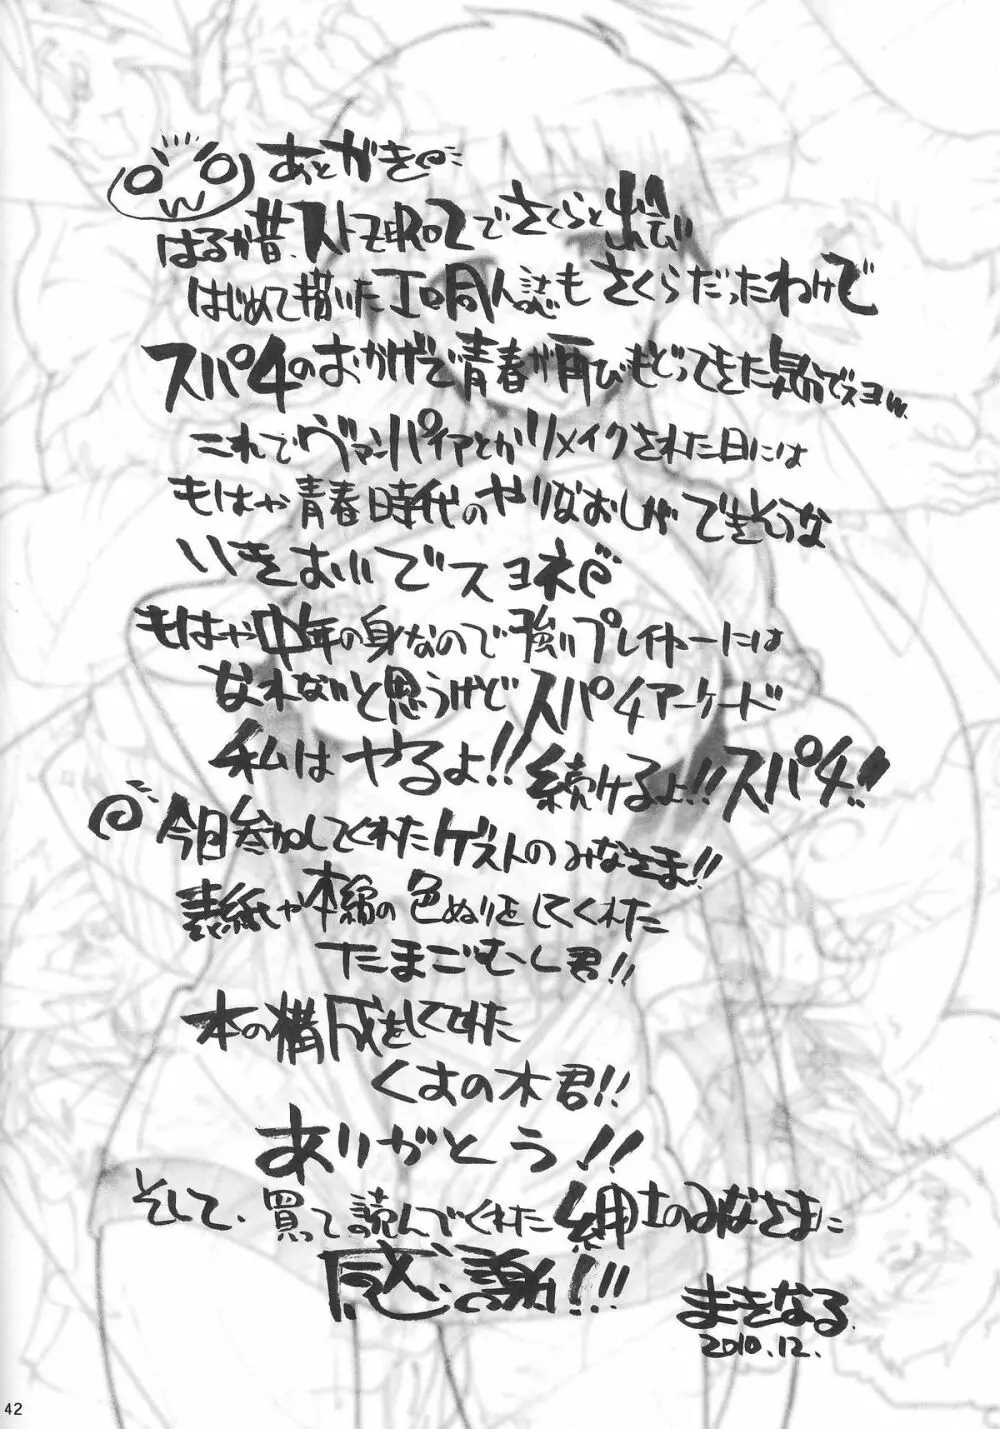 あとがき
はるか昔、ストZERO2でさくらと出会い
はじめて描いたエロ同人誌もさくらだったわけで
スパ4のおかげで青春が再びもどってきた気分でスヨw
これでヴァンパイアとかリメイクされた日には
もはや青春時代のやりなおしができそうな
いきおいでスヨネ
もはや中年の身なので強いプレイヤーには
なれないと思うけどスパ4アーケード
私はやるよ!!続けるよ!!スパ4!!
今回参加してくれたゲストのみなさま!!
表紙や本編の色ぬりをしてくれた
たまごむし君!!
本の構成をしてくれた
くすの木君!!
ありがとう!!
そして、買って読んでくれた紳士のみなさまに
感謝!!!
まきなる
2010.12.
42